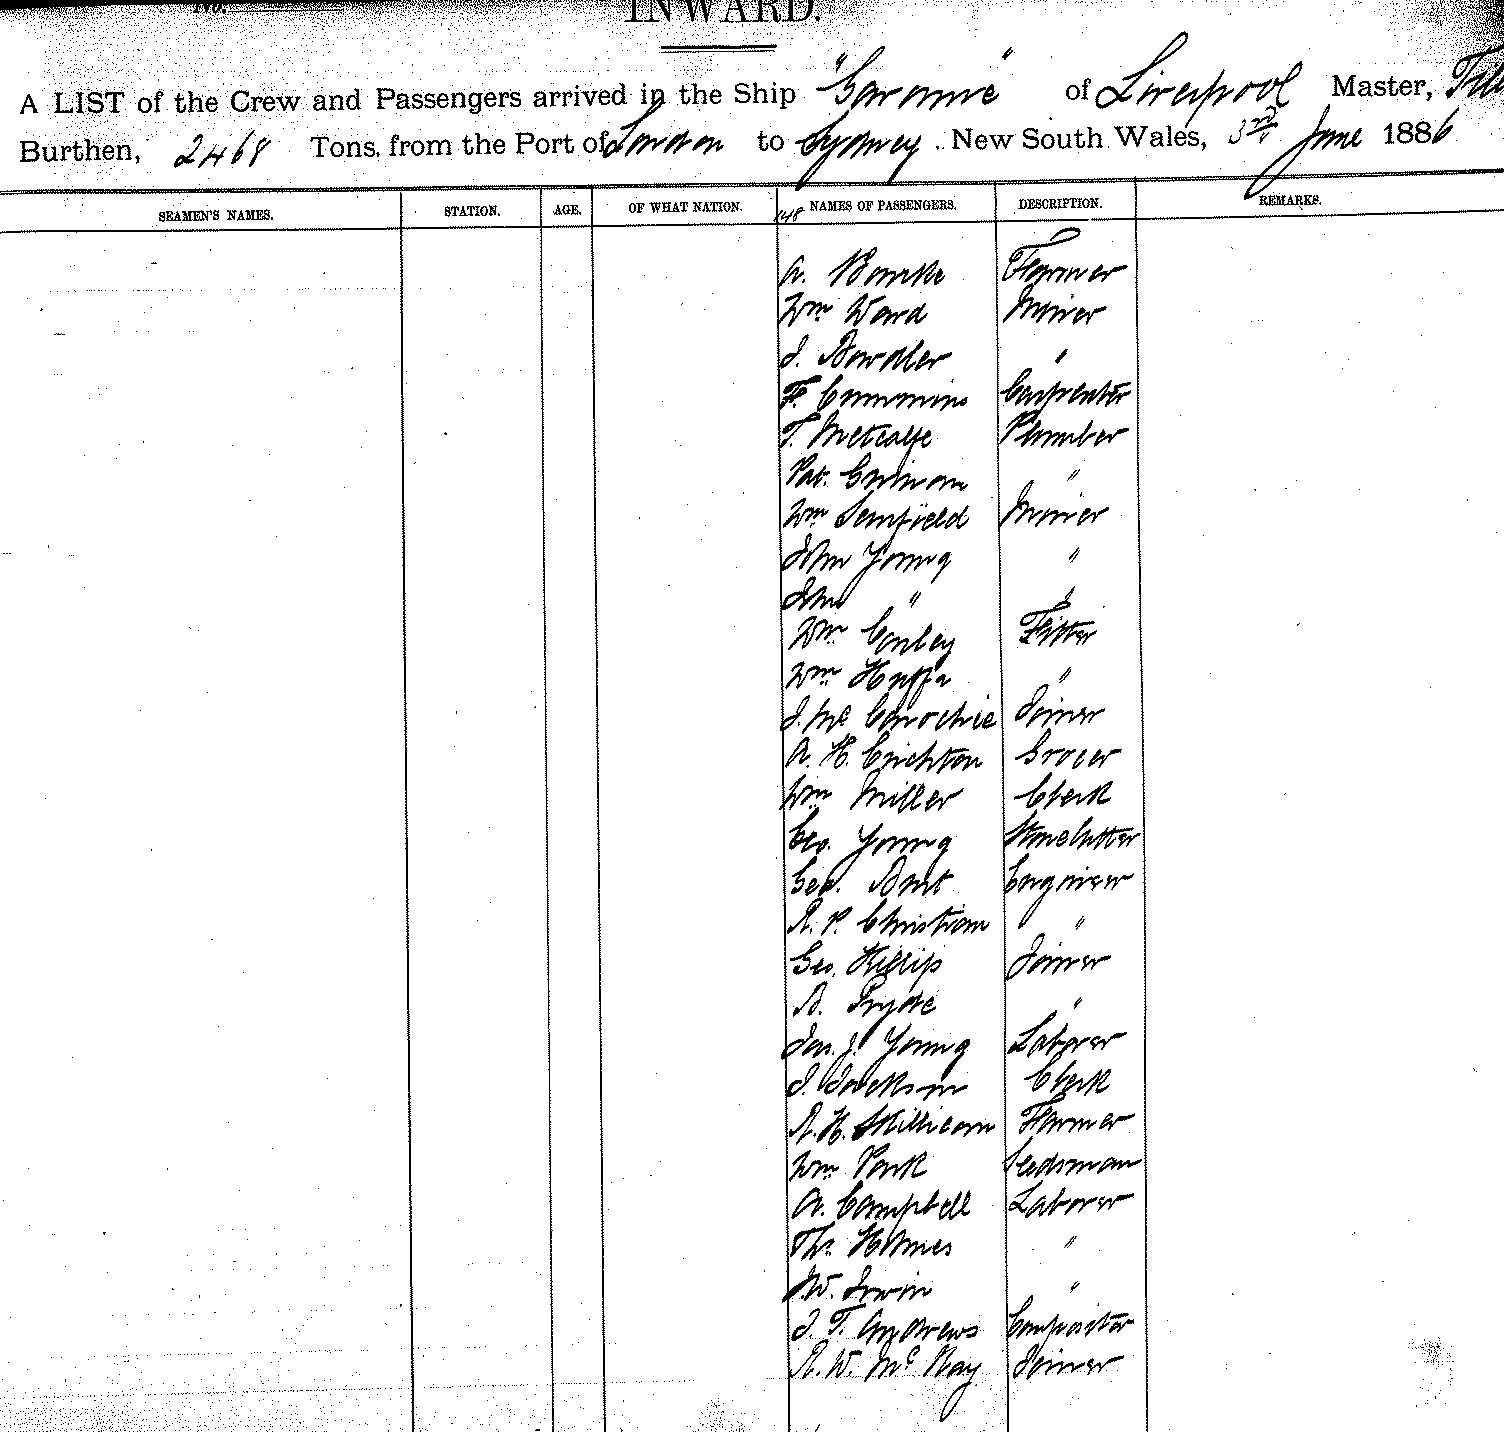 No.
INWARD.
A LIST of the Crew and Passengers arrived in the Ship "Garonne" of Liverpool Master,
Burthen, 2468 Tons, from the Port of London to Sydney, New South Wales, 3rd June 1886
SEAMEN'S NAMES. STATION. AGE. OF WHAT NATION. 148 NAMES OF PASSENGERS. DESCRIPTION. REMARKS.
A. Bourke Farmer
Wm Ward Miner
J. Bowdler "
F. Cummins Carpenter
T. Metcalfe Plumber
Pat. "
Wm Miner
John Young "
John " "
Wm Conley Fitter
Wm "
J. Mc Conochie Joiner
A. H. Crichton Grocer
Wm Miller Clerk
Geo. Young Stonecutter
Geo. Engineer
R. P. Christian "
Geo. Killip Joiner
R. Pryde "
Jas. J. Young Laborer
J. Jackson Clerk
R. H. Skillicorn Farmer
Wm Park Seedsman
A. Campbell Laborer
Ths. Holmes "
W. Irwin "
J. T. Andrews Compositor
R. W. Mc Kay Joiner